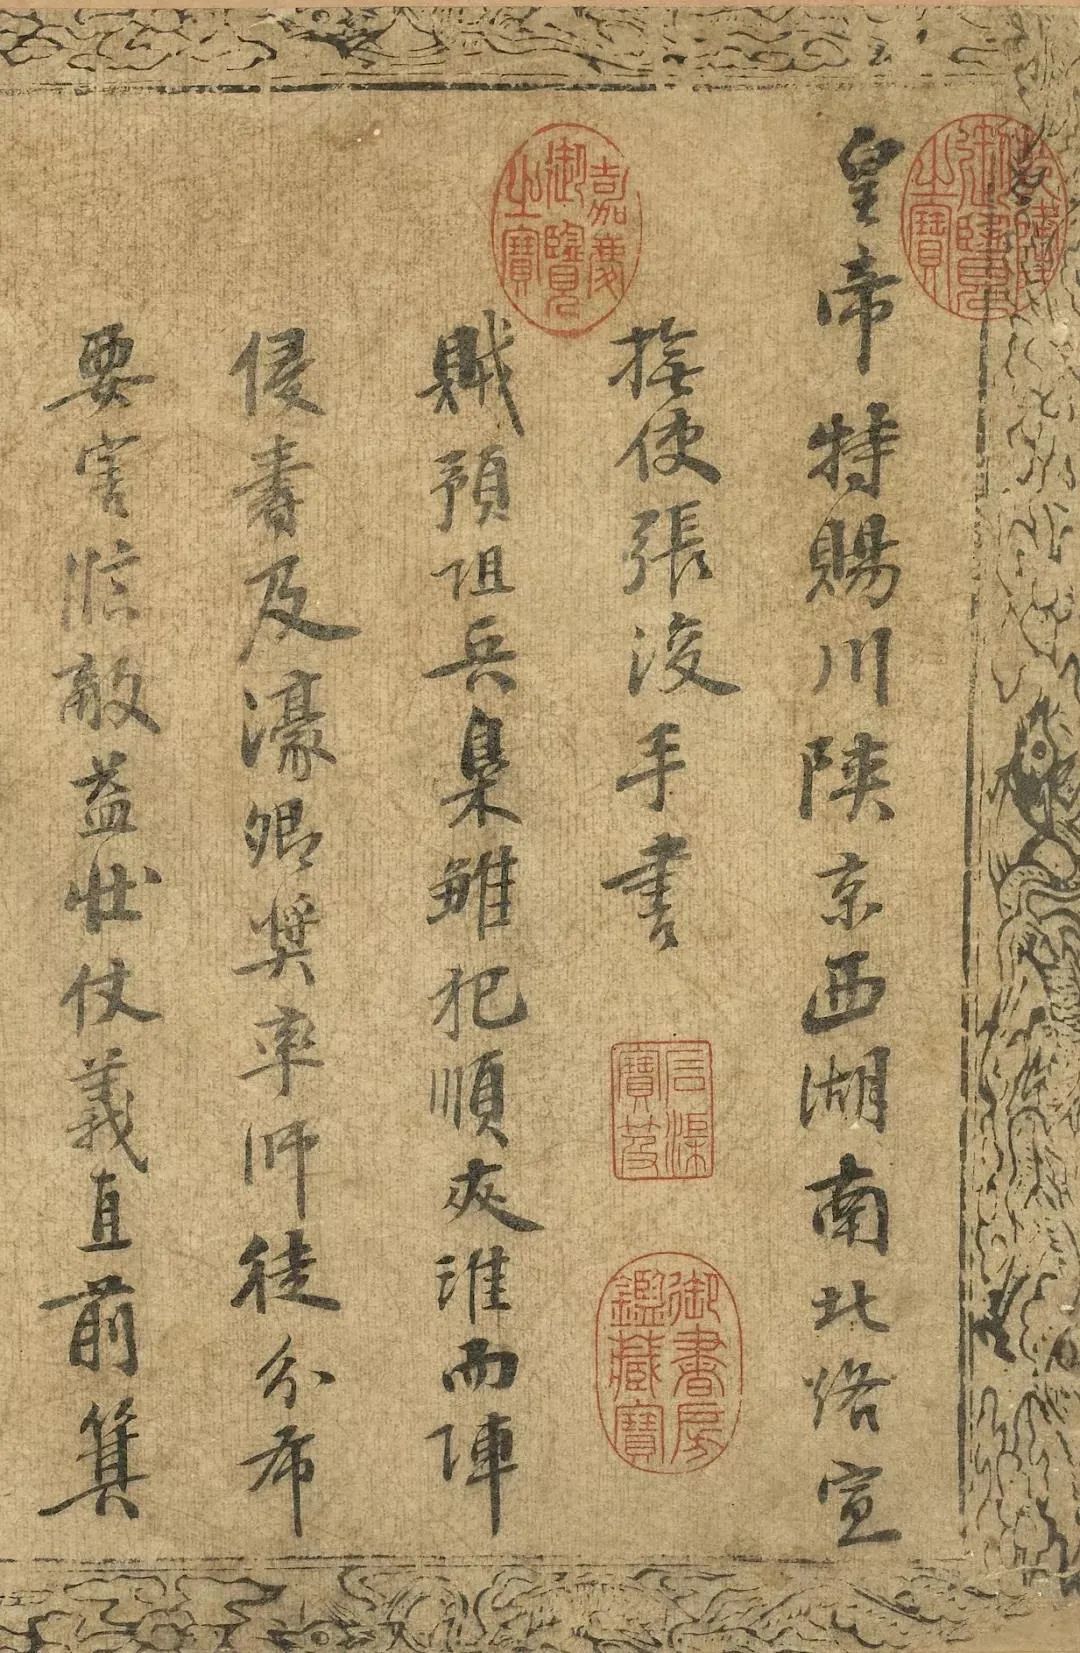 乾隆御覽之寶
皇帝特賜川陝京西湖南北路宣
撫使張浚手書
嘉慶御覽之寶
石渠寶笈
御書房鑑藏寶
賊預阻兵梟雛犯順夾淮而陣
侵壽及濠卿奬率師徒分布
要害臨敵益壯仗義直前箕